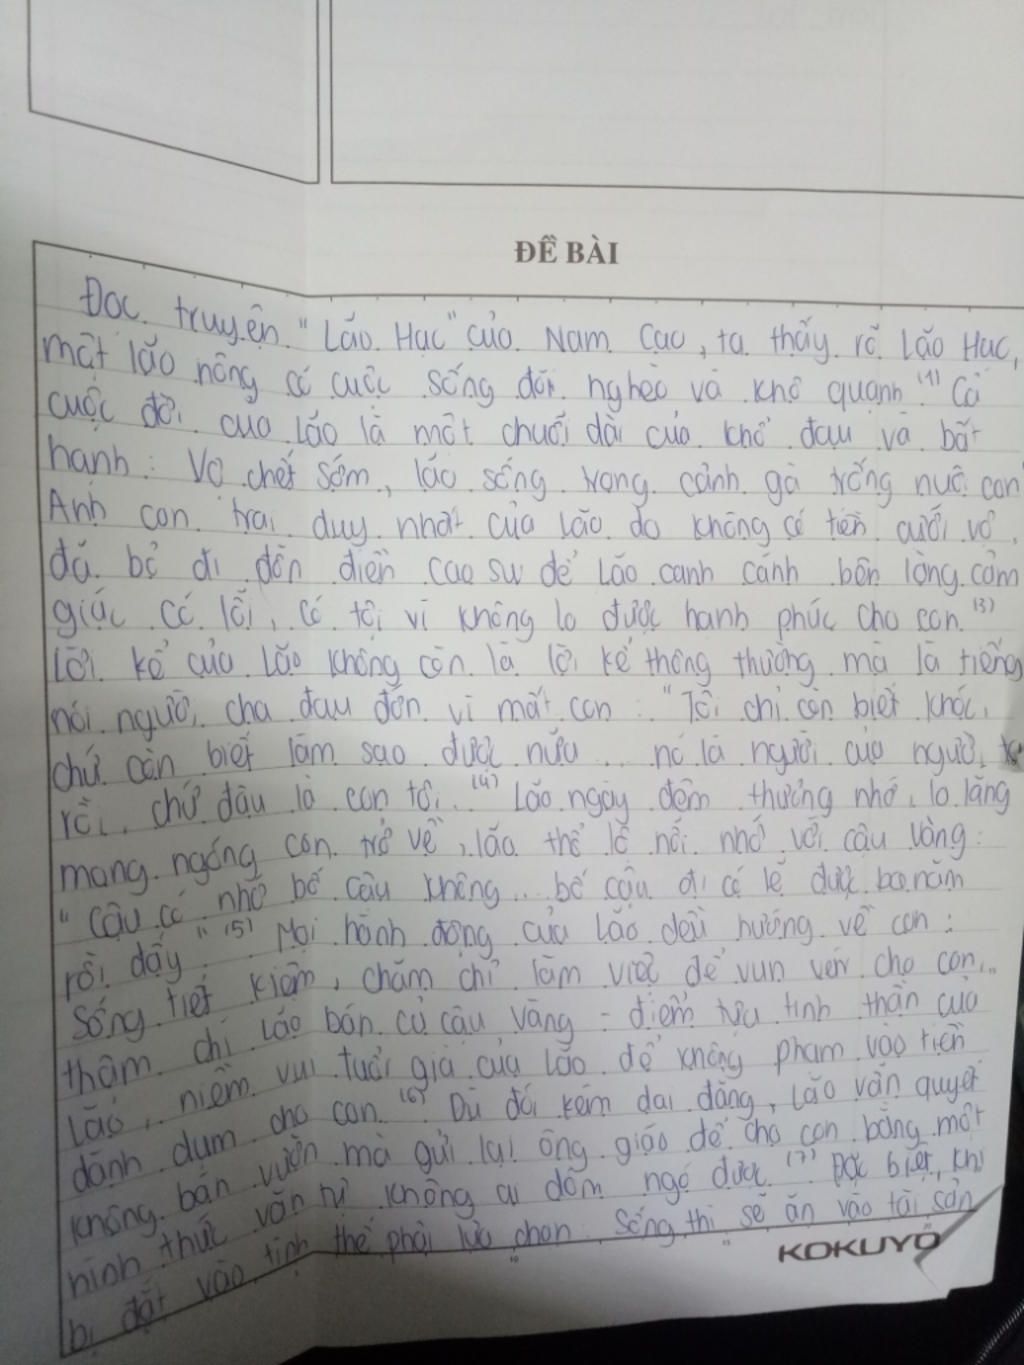 ĐỀ BÀI
Đọc truyện "Lão Hạc" của Nam Cao, ta thấy rõ Lão Hạc,
một lão nông có cuộc sống đói nghèo và khổ quạnh (1) Cả
cuộc đời của lão là một chuỗi dài của khổ đau và bất
hạnh: Vợ chết sớm, lão sống trong cảnh gà trống nuôi con
Anh con trai duy nhất của lão do không có tiền cưới vợ,
đã bỏ đi đồn điền cao su để lão canh cánh bên lòng cảm
giác có lỗi, có tội vì không lo được hạnh phúc cho con. (3)
Lời kể của lão không còn là lời kể thông thường mà là tiếng
nói người cha đau đớn vì mất con: "Tôi chỉ còn biết khóc,
chứ còn biết làm sao được nữa... nó là người của người ta
rồi, chứ đâu là con tôi. (4) Lão ngày đêm thương nhớ, lo lắng
mang ngóng con trở về, lão thổ lộ nỗi nhớ với cậu vàng:
"Cậu có nhớ bố cậu không... bố cậu đi có lẽ được ba năm
rồi đấy" (5) Mọi hành động của lão đều hướng về con:
Sống tiết kiệm, chăm chỉ làm việc để vun vén cho con,..
thậm chí lão bán cả cậu vàng - điểm tựa tinh thần của
lão, niềm vui tuổi già của lão để không phạm vào tiền
dành dụm cho con. (6) Dù đói kém dai dẳng, lão vẫn quyết
không bán vườn mà gửi lại ông giáo để cho con bằng một
hình thức văn tự không ai dòm ngó được. (7) Đặc biệt, khi
bị đặt vào tình thế phải lựa chọn: Sống thì sẽ ăn vào tài sản
KOKUYO